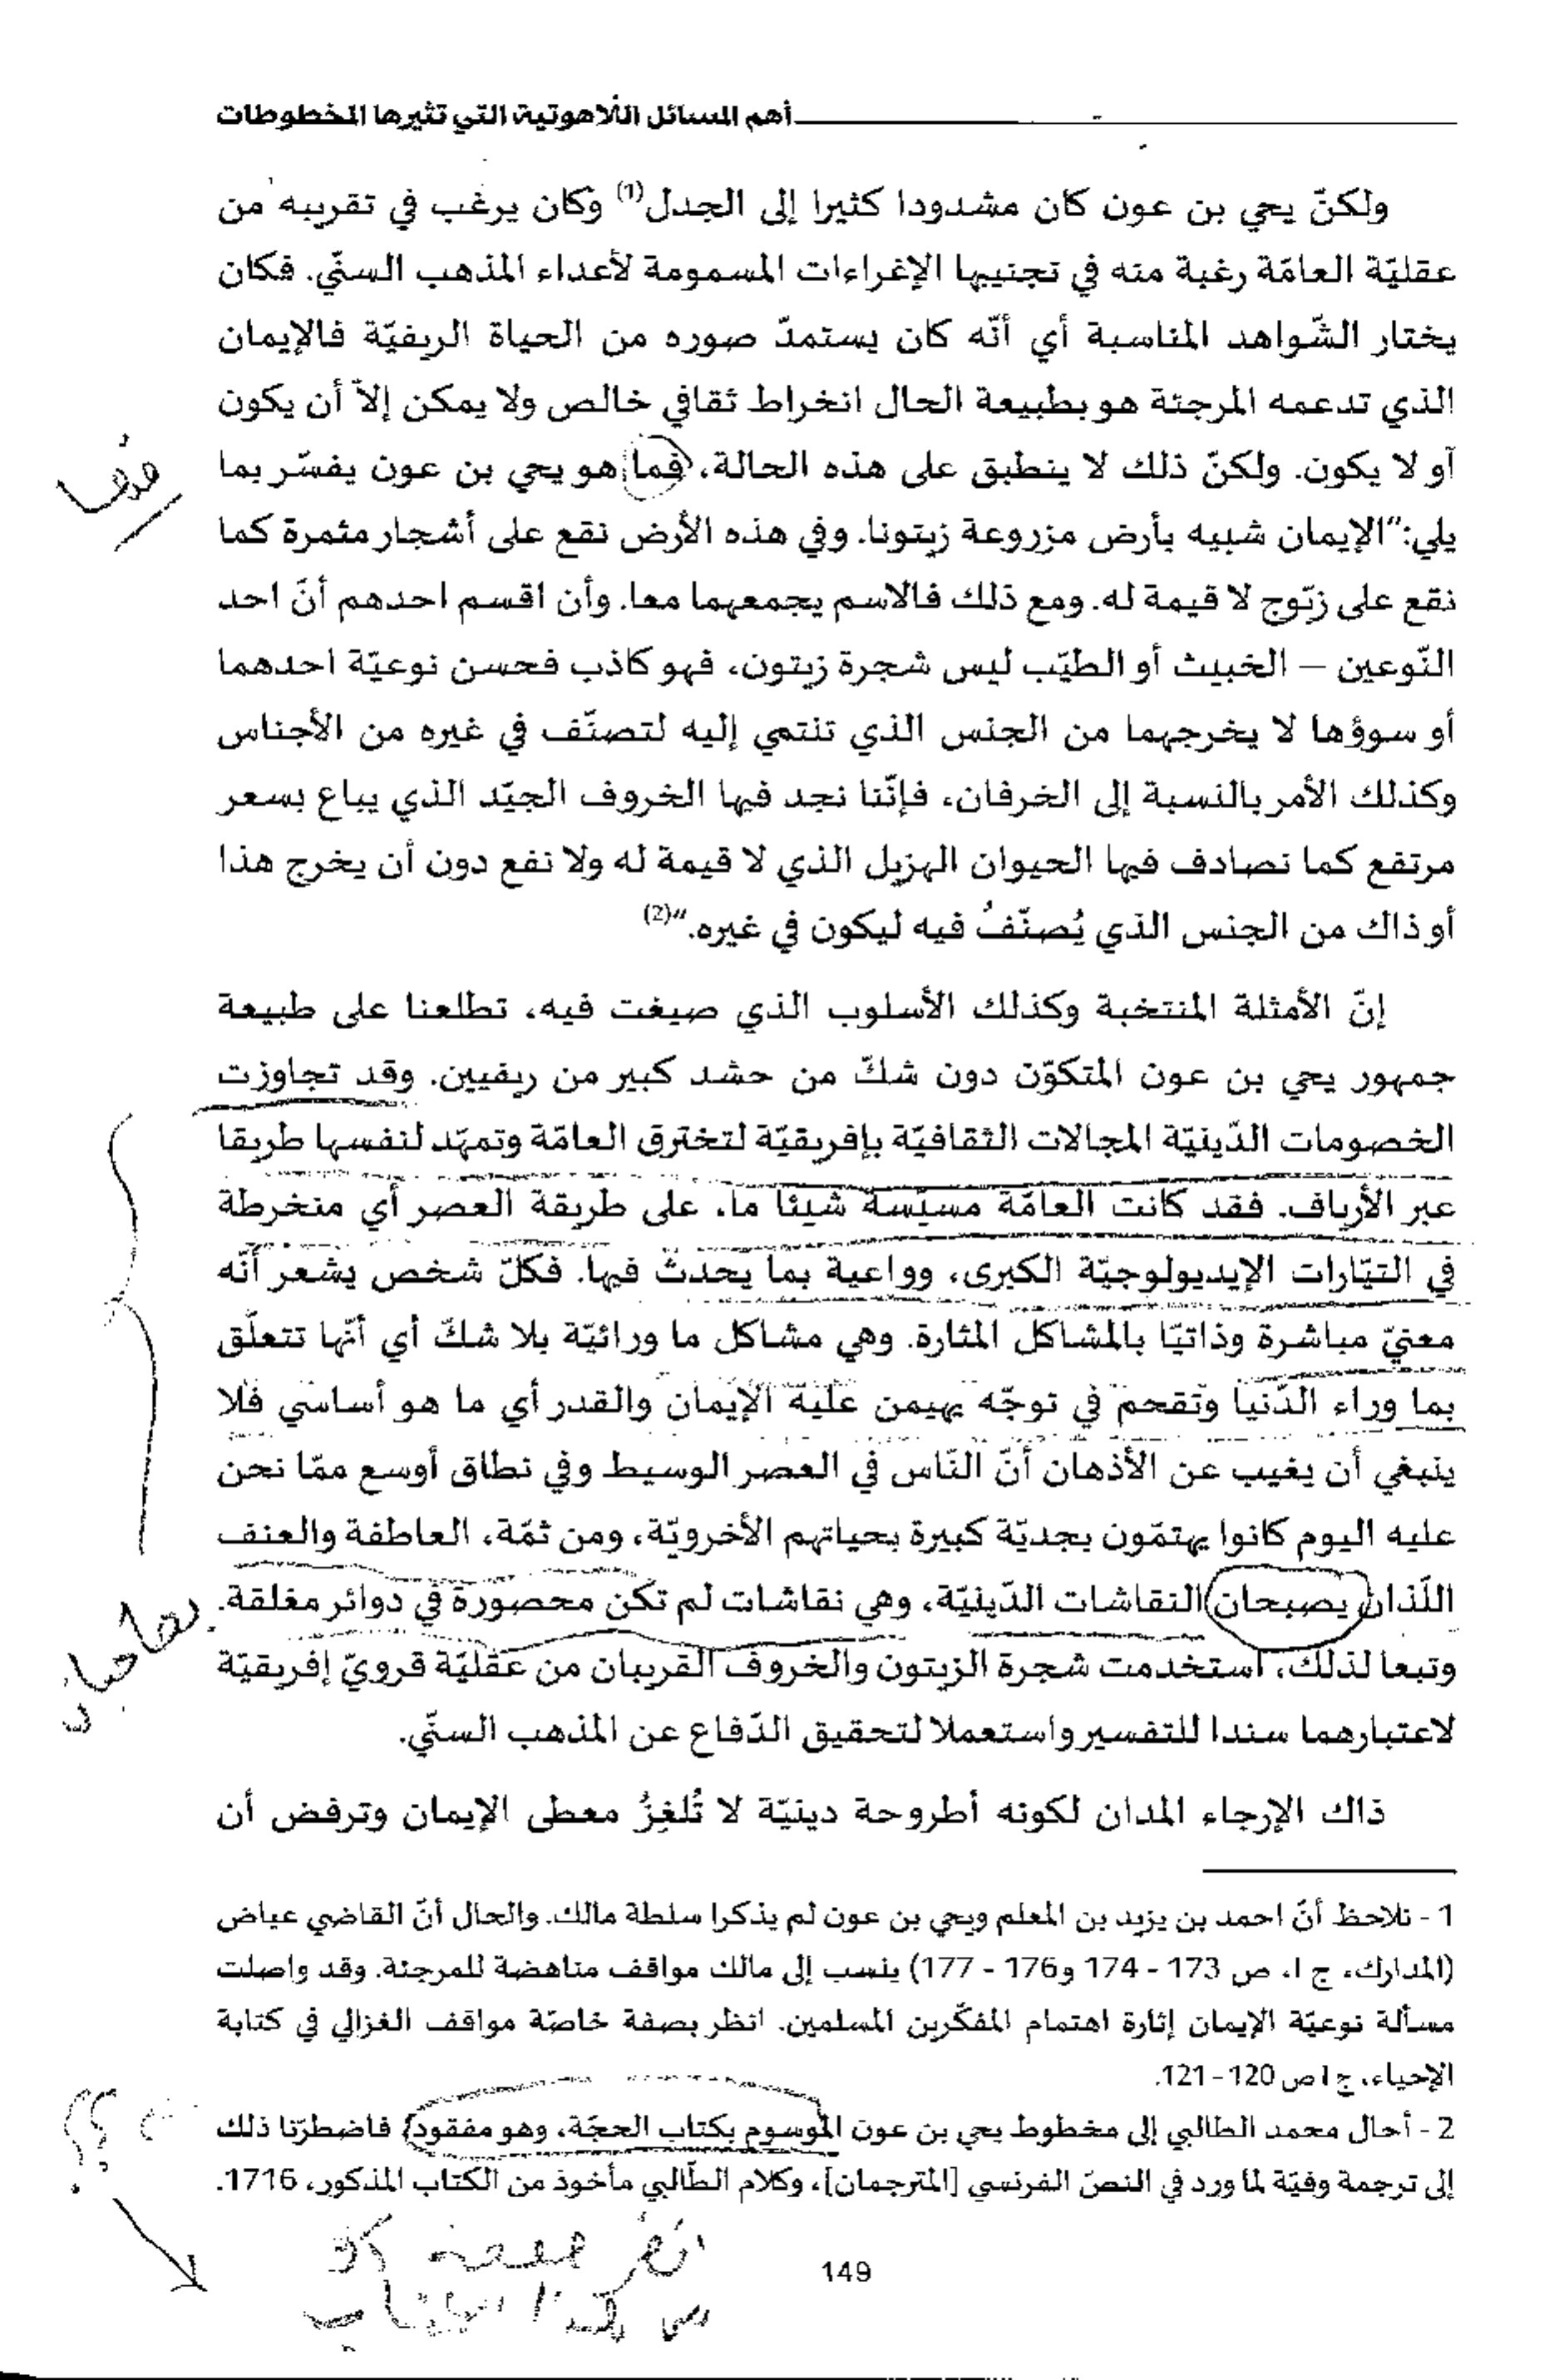 أهم المسائل اللّاهوتية التي تثيرها المخطوطات
ولكنّ يحي بن عون كان مشدودا كثيرا إلى الجدل(1) وكان يرغب في تقريبه من
عقليّة العامّة رغبة منه في تجنيبها الإغراءات المسمومة لأعداء المذهب السنّي. فكان
يختار الشّواهد المناسبة أي أنّه كان يستمدّ صوره من الحياة الريفيّة فالإيمان
الذي تدعمه المرجئة هو بطبيعة الحال انخراط ثقافي خالص ولا يمكن إلاّ أن يكون
أو لا يكون. ولكنّ ذلك لا ينطبق على هذه الحالة، فما هو يحي بن عون يفسّر بما
يلي:"الإيمان شبيه بأرض مزروعة زيتونا. وفي هذه الأرض نقع على أشجار مثمرة كما
نقع على زبّوج لا قيمة له. ومع ذلك فالاسم يجمعهما معا. وأن اقسم احدهم أنّ احد
النّوعين – الخبيث أو الطيّب ليس شجرة زيتون، فهو كاذب فحسن نوعيّة احدهما
أو سوؤها لا يخرجهما من الجنس الذي تنتمي إليه لتصنّف في غيره من الأجناس
وكذلك الأمر بالنسبة إلى الخرفان، فإنّنا نجد فيها الخروف الجيّد الذي يباع بسعر
مرتفع كما نصادف فيها الحيوان الهزيل الذي لا قيمة له ولا نفع دون أن يخرج هذا
أو ذاك من الجنس الذي يُصنّفُ فيه ليكون في غيره."(2)
إنّ الأمثلة المنتخبة وكذلك الأسلوب الذي صيغت فيه، تطلعنا على طبيعة
جمهور يحي بن عون المتكوّن دون شكّ من حشد كبير من ريفيين. وقد تجاوزت
الخصومات الدّينيّة المجالات الثقافيّة بإفريقيّة لتخترق العامّة وتمهّد لنفسها طريقا
عبر الأرياف. فقد كانت العامّة مسيّسة شيئا ما، على طريقة العصر أي منخرطة
في التيّارات الإيديولوجيّة الكبرى، وواعية بما يحدث فيها. فكلّ شخص يشعر أنّه
معنيّ مباشرة وذاتيّا بالمشاكل المثارة. وهي مشاكل ما ورائيّة بلا شكّ أي أنّها تتعلّق
بما وراء الدّنيا وتقحم في توجّه يهيمن عليه الإيمان والقدر أي ما هو أساسي فلا
ينبغي أن يغيب عن الأذهان أنّ النّاس في العصر الوسيط وفي نطاق أوسع ممّا نحن
عليه اليوم كانوا يهتمّون بجديّة كبيرة بحياتهم الأخرويّة، ومن ثمّة، العاطفة والعنف
اللّذان يصبحان النقاشات الدّينيّة، وهي نقاشات لم تكن محصورة في دوائر مغلقة.
يصاحبان
وتبعا لذلك، استخدمت شجرة الزيتون والخروف القريبان من عقليّة قرويّ إفريقيّة
لاعتبارهما سندا للتفسير واستعملا لتحقيق الدّفاع عن المذهب السنّي.
ذاك الإرجاء المدان لكونه أطروحة دينيّة لا تُلغِزُ معطى الإيمان وترفض أن
1 - نلاحظ أنّ احمد بن يزيد بن المعلم ويحي بن عون لم يذكرا سلطة مالك. والحال أنّ القاضي عياض
(المدارك، ج I، ص 173 - 174 و176 - 177) ينسب إلى مالك مواقف مناهضة للمرجئة. وقد واصلت
مسألة نوعيّة الإيمان إثارة اهتمام المفكّرين المسلمين. انظر بصفة خاصّة مواقف الغزالي في كتابة
الإحياء، ج I ص 120 - 121.
2 - أحال محمد الطالبي إلى مخطوط يحي بن عون الموسوم بكتاب الحجّة، وهو مفقود) فاضطرّنا ذلك
إلى ترجمة وفيّة لما ورد في النصّ الفرنسي [المترجمان]، وكلام الطّالبي مأخوذ من الكتاب المذكور، 1716.
؟؟
149